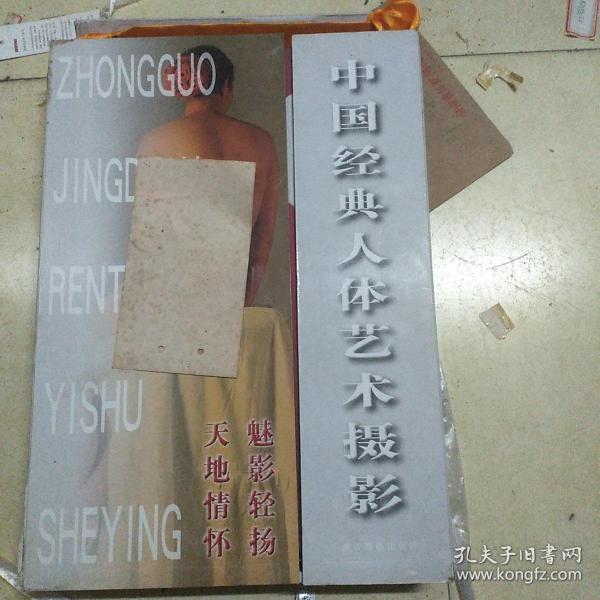 ZHONGGUO
JINGD
RENT
YISHU
SHEYING
魅影轻扬
天地情怀
中国经典人体艺术摄影
孔夫子旧书网
www.kongfz.com